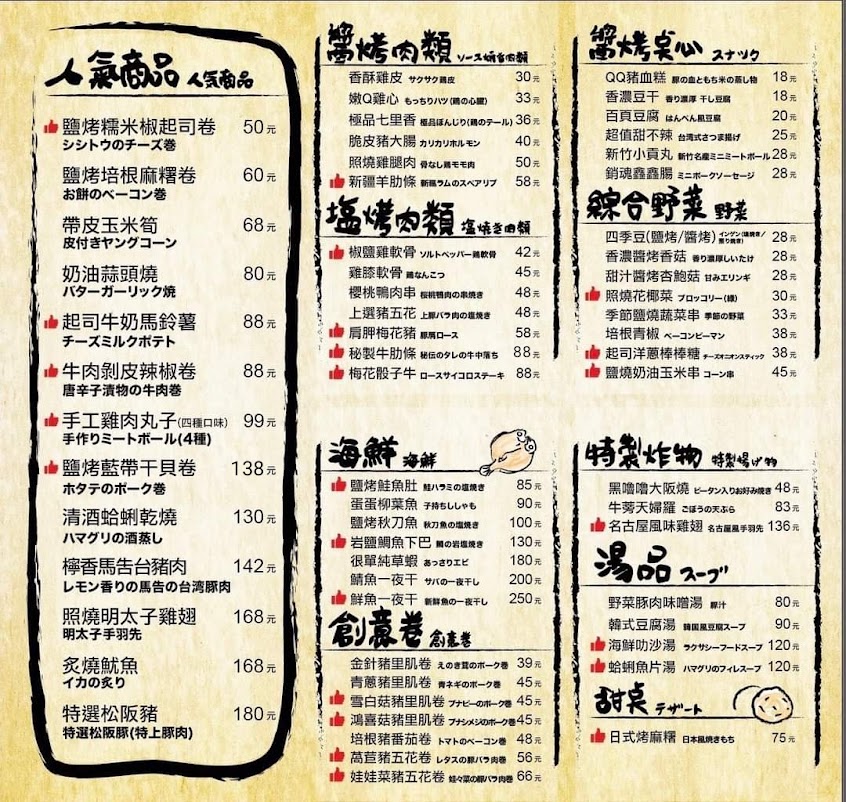 人氣商品 人気商品
鹽烤糯米椒起司卷 50元
シシトウのチーズ巻
鹽烤培根麻糬卷 60元
お餅のベーコン巻
帶皮玉米筍 68元
皮付きヤングコーン
奶油蒜頭燒 80元
バターガーリック焼
起司牛奶馬鈴薯 88元
チーズミルクポテト
牛肉剝皮辣椒卷 88元
唐辛子漬物の牛肉巻
手工雞肉丸子(四種口味) 99元
手作りミートボール(4種)
鹽烤藍帶干貝卷 138元
ホタテのポーク巻
清酒蛤蜊乾燒 130元
ハマグリの酒蒸し
檸香馬告台豬肉 142元
レモン香りの馬告の台湾豚肉
照燒明太子雞翅 168元
明太子手羽先
炙燒魷魚 168元
イカの炙り
特選松阪豬 180元
特選松阪豚(特上豚肉)
醬烤肉類 ソース焼き肉類
香酥雞皮 サクサク鶏皮 30元
嫩Q雞心 もっちりハツ(鶏の心臓) 33元
極品七里香 極品ぼんじり(鶏のテール) 36元
脆皮豬大腸 カリカリホルモン 40元
照燒雞腿肉 骨なし鶏モモ肉 50元
新疆羊肋條 新疆ラムのスペアリブ 58元
塩烤肉類 塩焼き肉類
椒鹽雞軟骨 ソルトペッパー鶏軟骨 42元
雞膝軟骨 鶏なんこつ 45元
櫻桃鴨肉串 桜桃鴨肉の串焼き 48元
上選豬五花 上豚バラ肉の塩焼き 48元
肩胛梅花豬 豚肩ロース 58元
秘製牛肋條 秘伝のタレの牛中落ち 88元
梅花骰子牛 ロースサイコロステーキ 88元
海鮮 海鮮
鹽烤鮭魚肚 鮭ハラミの塩焼き 85元
蛋蛋柳葉魚 子持ちししゃも 90元
鹽烤秋刀魚 秋刀魚の塩焼き 100元
岩鹽鯛魚下巴 鯛の岩塩焼き 130元
很單純草蝦 あっさりエビ 180元
鯖魚一夜干 サバの一夜干し 200元
鮮魚一夜干 新鮮魚の一夜干し 250元
創意卷 創意巻
金針豬里肌卷 えのき茸のポーク巻 39元
青蔥豬里肌卷 青ネギのポーク巻 45元
雪白菇豬里肌卷 ブナピーのポーク巻 45元
鴻喜菇豬里肌卷 ブナシメジのポーク巻 45元
培根豬番茄卷 トマトのベーコン巻 48元
萵苣豬五花卷 レタスの豚バラ肉巻 56元
娃娃菜豬五花卷 娃々菜の豚バラ肉巻 66元
醬烤點心 スナック
QQ豬血糕 豚の血ともち米の蒸し物 18元
香濃豆干 香り濃厚 干し豆腐 18元
百頁豆腐 はんぺん風豆腐 20元
超值甜不辣 台湾式さつま揚げ 25元
新竹小貢丸 新竹名産ミニミートボール 28元
銷魂鑫鑫腸 ミニポークソーセージ 28元
綜合野菜 野菜
四季豆(鹽烤/醬烤) インゲン(塩焼き/照り焼き) 28元
香濃醬烤香菇 香り濃厚しいたけ 28元
甜汁醬烤杏鮑菇 甘みエリンギ 28元
照燒花椰菜 ブロッコリー(緑) 30元
季節鹽燒蔬菜串 季節の野菜 33元
培根青椒 ベーコンピーマン 38元
起司洋蔥棒棒糖 チーズオニオンスティック 38元
鹽燒奶油玉米串 コーン串 45元
特製炸物 特製揚げ物
黑嚕嚕大阪燒 ピータン入りお好み焼き 48元
牛蒡天婦羅 ごぼうの天ぷら 83元
名古屋風味雞翅 名古屋風手羽先 136元
湯品 スープ
野菜豚肉味噌湯 豚汁 80元
韓式豆腐湯 韓国風豆腐スープ 90元
海鮮叻沙湯 ラクサシーフードスープ 120元
蛤蜊魚片湯 ハマグリのフィレスープ 120元
甜桌 デザート
日式烤麻糬 日本風焼きもち 75元